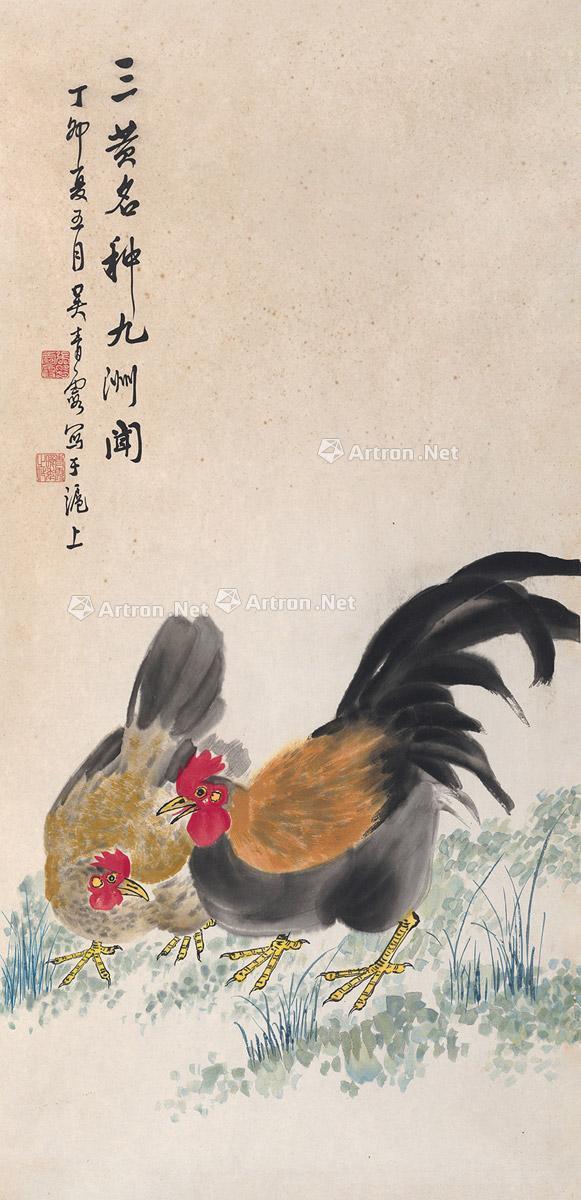 三黄名种九洲闻
丁卯夏五月吴青霞写于沪上
Artron.Net
Artron.Net
Artron.Net